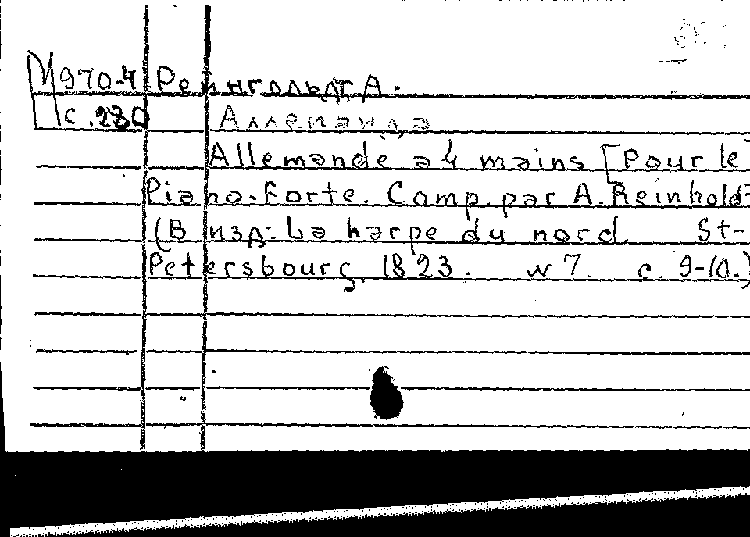 М970-4 Рейнгольдт А.
с. 280 Аллеманда
Allemande a 4 mains [pour le
Piano-Forte. Comp. par A. Reinhold
(В изд.: La harpe du nord St-
Petersbourg, 1823. N 7. с. 9-10.)